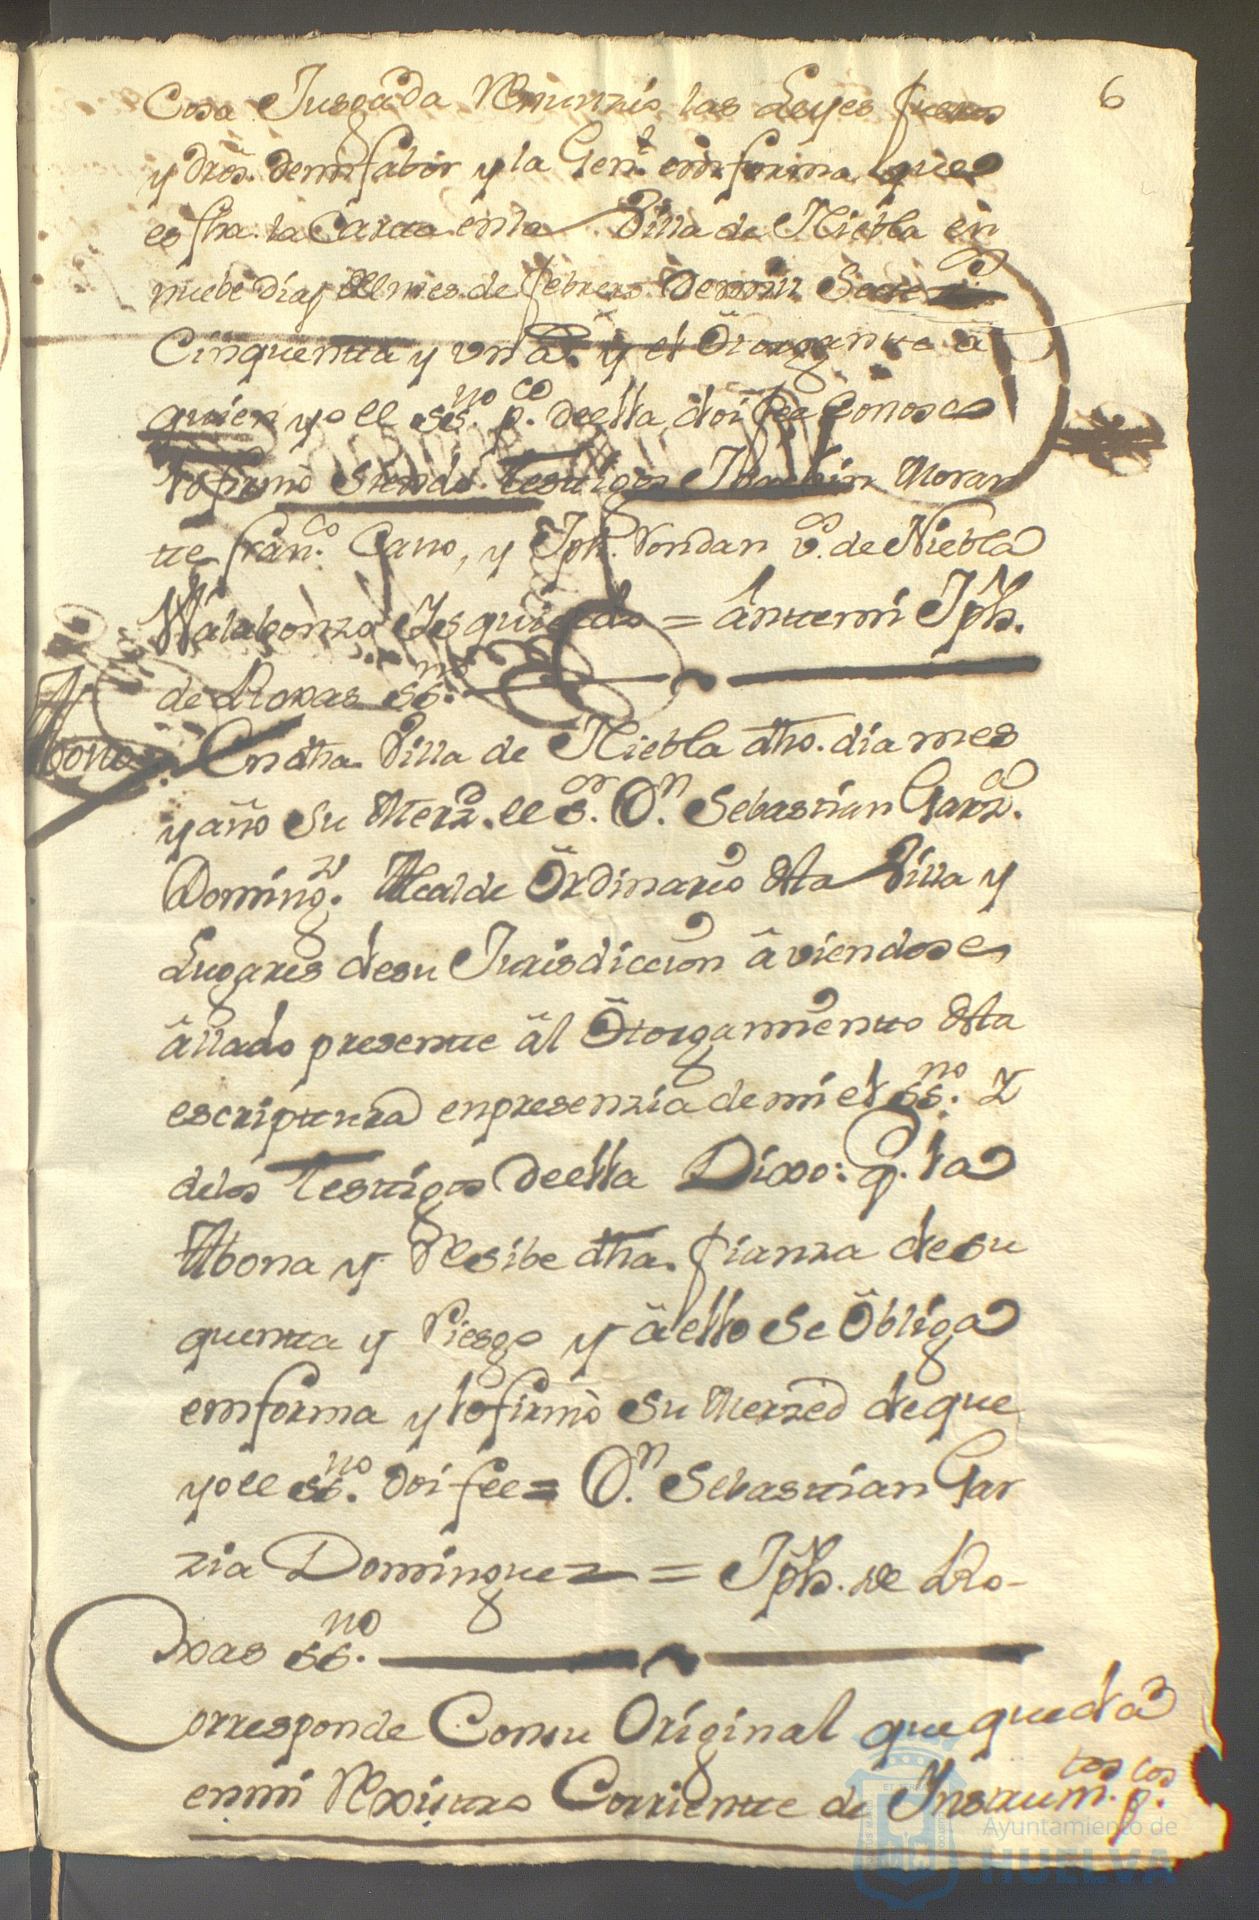 6
Cosa Jusgada Renunzio las Leyes fueros
y dros. demi fabor y la Gen.l enforma que
es fha. la Carta enla Villa de Niebla en
nuebe dias del mes de febrero demill Settez.os
Cinquenta y un a.s y el Ôtorgante â
quien yo el ss.no p.co deella doi fee Conosco
lo firmò siendo testigos Joachin Moran
te fran.co Cano, y Jph. Roldan v.os de Niebla
Walabonzo Isquierdo = ântemi Jph.
de Roxas ss.no
Abono
En dha. Villa de Niebla dho. dia mes
y año Su Merz.d el s.or D.n Sebastian Garz.a
Doming.z Alcalde Ôrdinario desta Villa y
Lugares desu Jurisdiccion âviendose
âllado presente âl Ôtorgamiento desta
escriptura enpresenzia de mi el ss.no Y
delos testigos deella Dixo: q. la
Abona y Resibe dha. fianza desu
quenta y Riesgo y âello se Ôbliga
enforma y lo firmò Su Merzed deque
yo el ss.no doi fee = D.n Sebastian Gar
zia Dominguez = Jph. de Ro-
xas ss.no
Corresponde Consu Original que queda
enmi Rexistro Corriente de Instrum.tos p.cos
Ayuntamiento de
HUELVA